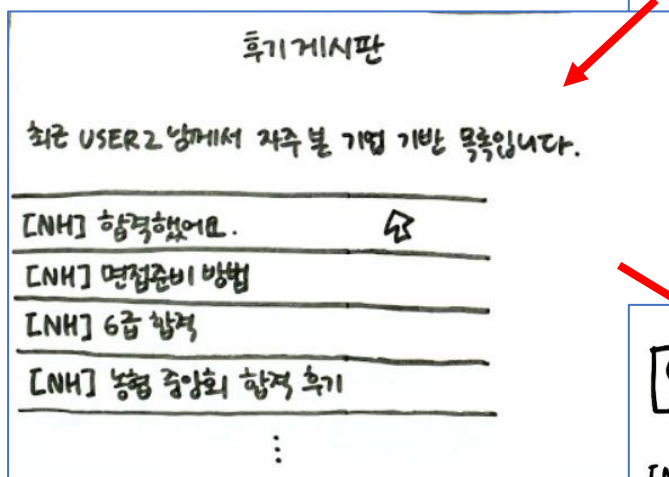 후기게시판
최근 USER2님께서 자주 본 기업 기반 목록입니다.
[NH] 합격했어요.
[NH] 면접준비 방법
[NH] 6급 합격
[NH] 농협 중앙회 합격 후기
⋮